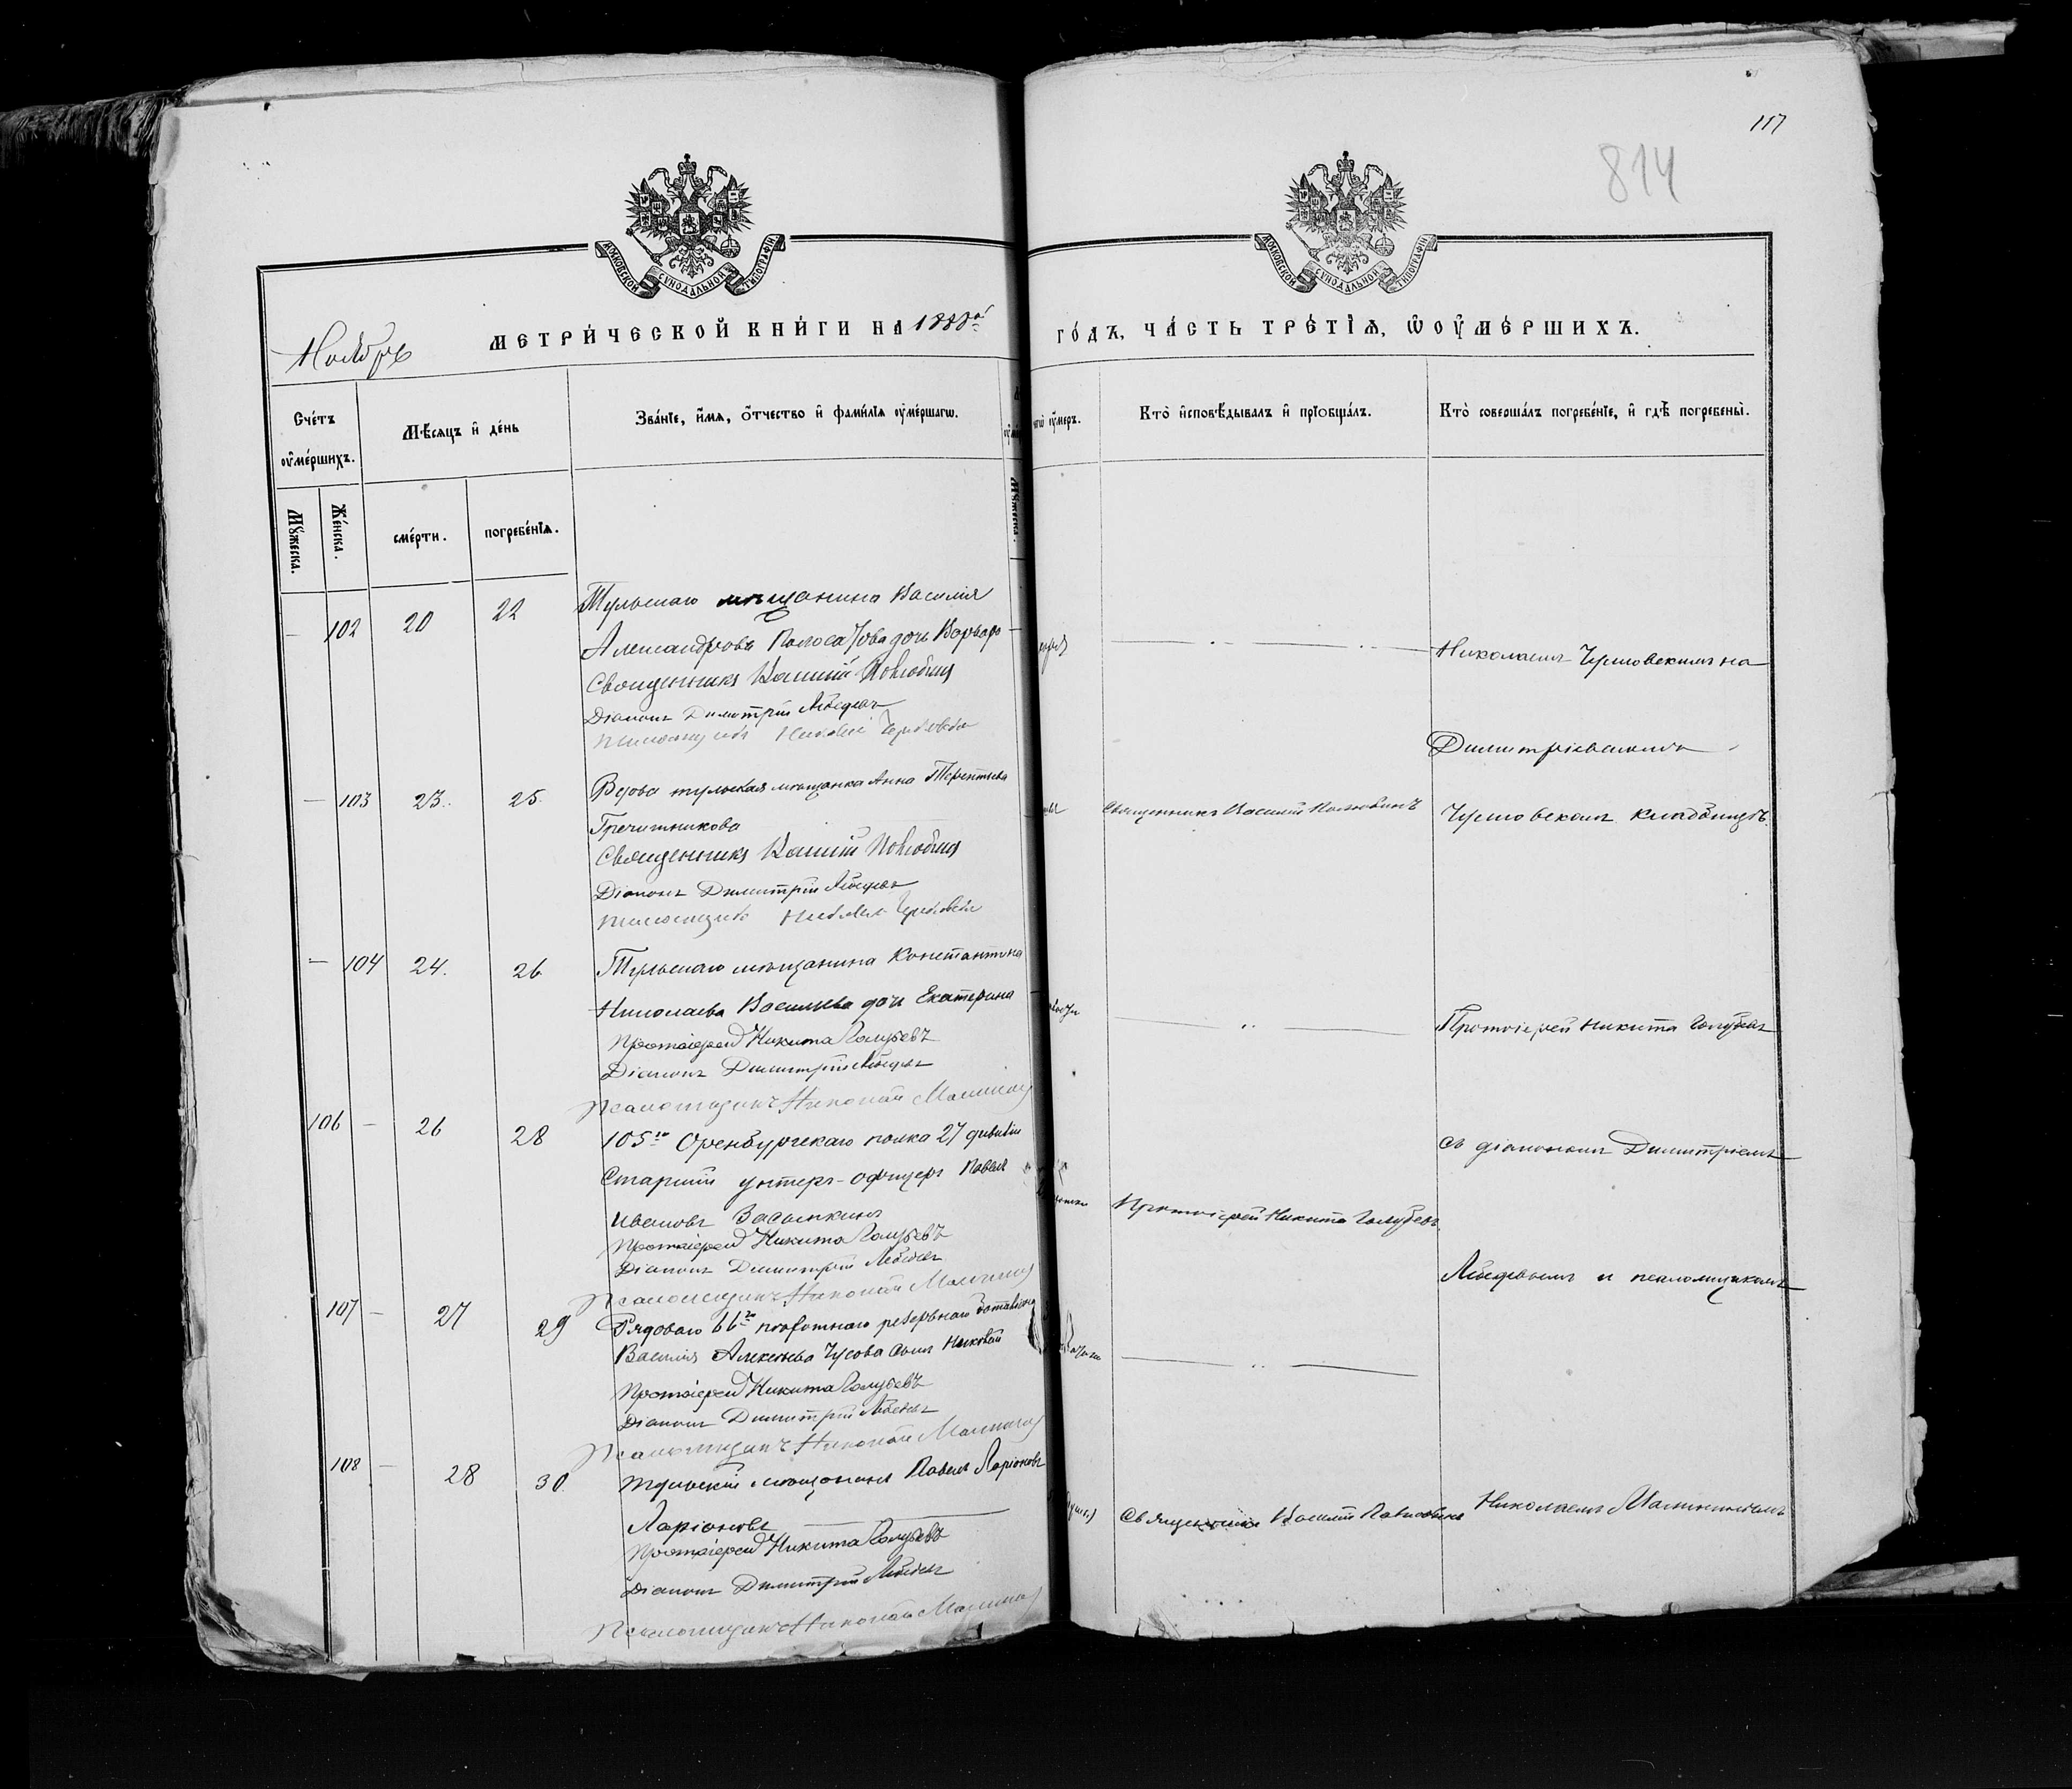 117
814
МОСКОВСКОЙ СѴНОДАЛЬНОЙ ТИПОГРАФІИ
МОСКОВСКОЙ СѴНОДАЛЬНОЙ ТИПОГРАФІИ
Ноябрь
МЕТРИ́ЧЕСКОЙ КНИ́ГИ НА 1888ой
ГО́ДЪ, ЧА́СТЬ ТРЕ́ТІЯ, Ѡ ОУ҆МЕ́РШИХЪ.
Сче́тъ оу҆ме́ршихъ.
Мѣ́сяцъ и҆ де́нь
Зва́нїе, и҆́мя, ѻ҆́тчество и҆ фамı́лїя оу҆ме́ршагѡ.
Кто̀ и҆сповѣ́дывалъ и҆ прїобща́лъ.
Кто̀ соверша́лъ погребе́нїе, и҆ гдѣ̀ погребены̀.
Мꙋ́жеска.
Же́нска.
сме́рти.
погребе́нїѧ.
— 102 20 22 Тульскаго мѣщанина Василія
Александрова Полосатова дочь Варвара
Священникъ Василій Павловинъ
Діаконъ Димитрій Лебедевъ
Николаемъ на
Димитріевскомъ
— 103 23. 25. Вдова тульская мѣщанка Анна Терентьева
Гречишникова
Священникъ Василій
Діаконъ Димитрій Лебедевъ
Священникъ Василій
кладбищѣ.
— 104 24. 26 Тульскаго мѣщанина Константина
Николаева Васильева дочь Екатерина
Протоіерей Никита Голубевъ
Діаконъ Димитрій Лебедевъ
Псаломщикъ Николай Малининъ
Протоіерей Никита Голубевъ
106 — 26 28 105го Оренбургскаго полка 27 дивизіи
Старшій унтеръ-офицеръ Павелъ
Ивановъ
Протоіерей Никита Голубевъ
Діаконъ Димитрій Лебедевъ
Псаломщикъ Николай Малининъ
Протоіерей Никита Голубевъ
съ діакономъ Димитріемъ
Лебедевымъ и псаломщикомъ
107 — 27 29 Рядоваго 66го пѣхотнаго резервнаго баталіона
Василія Алексѣева Чусова сынъ Николай
Протоіерей Никита Голубевъ
Діаконъ Димитрій Лебедевъ
Псаломщикъ Николай Малининъ
108 — 28 30. Тульскій мѣщанинъ Павелъ Ларіоновъ
Ларіоновъ
Протоіерей Никита Голубевъ
Діаконъ Димитрій Лебедевъ
Псаломщикъ Николай Малининъ
Священникъ Василій
Николаемъ Малининымъ